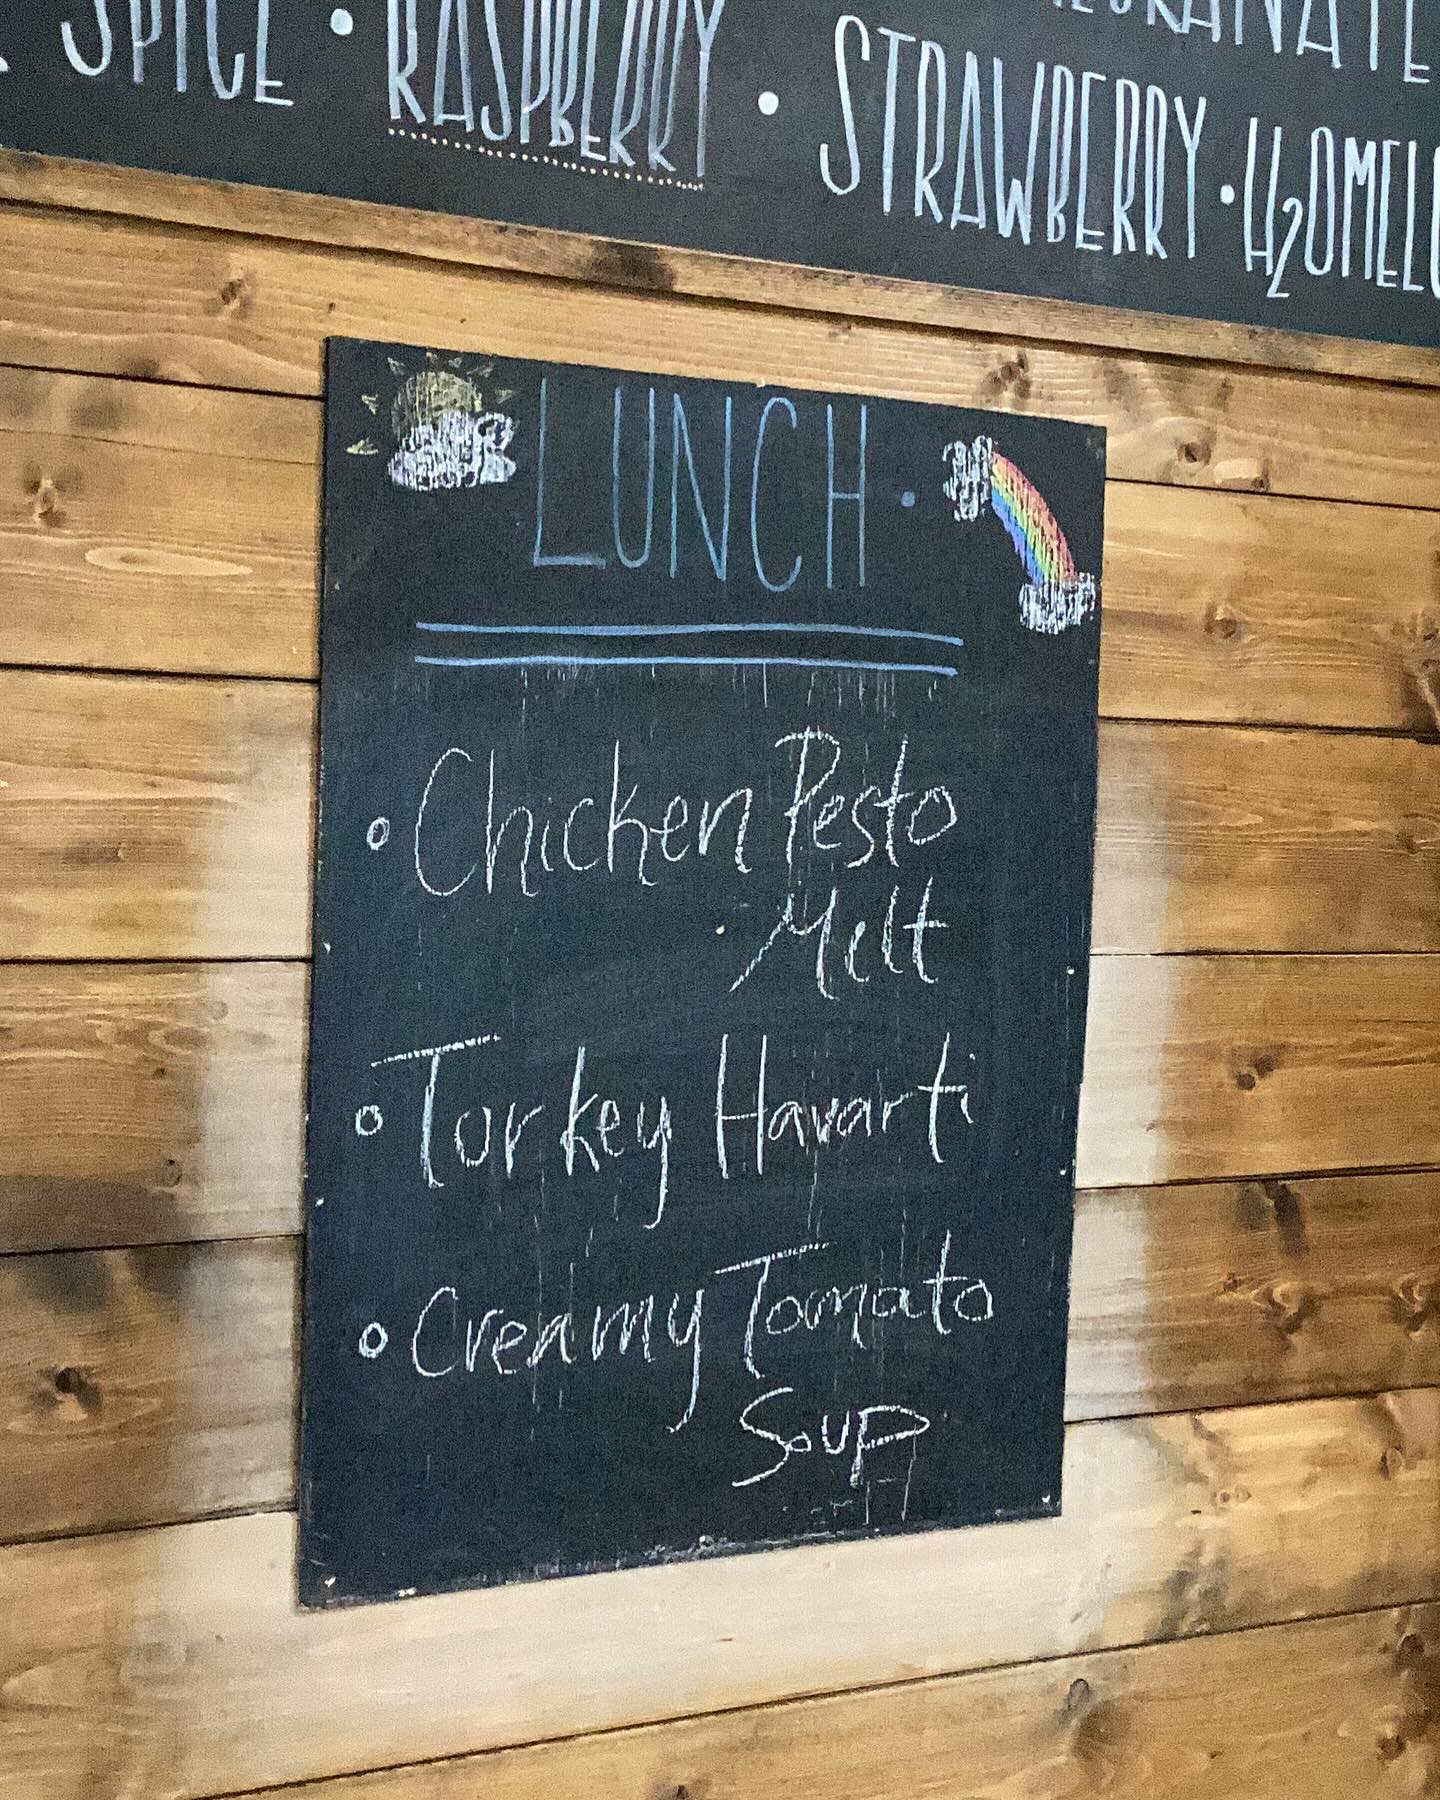 SPICE • RASPBERRY • STRAWBERRY • H2OMELO
LUNCH •
• Chicken Pesto
Melt
• Turkey Havarti
• Creamy Tomato
Soup